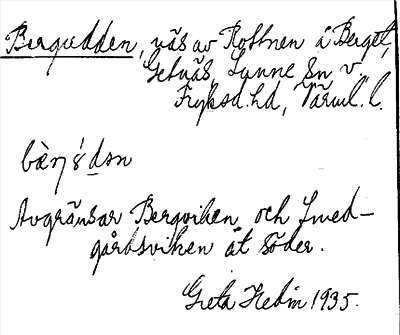 Bergudden, näs av Rottnen å Berget,
Getnäs, Lunne Sn v.
Fryksd. hd, Värml. l.
bàrŋ ʉ́dən
Avgränsar Bergviken och Smed-
gårdsviken åt söder.
Greta Hedin 1935.